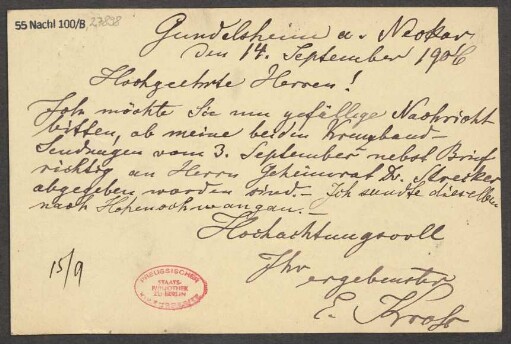 55 Nachl 100/B, 27898
Gundelsheim a. Neckar
den 14. September 1906
Hochgeehrte Herren!
Ich möchte Sie um gefällige Nachricht
bitten, ob meine beiden Kreuzband-
Sendungen vom 3. September nebst Brief
richtig an Herrn Geheimrat Dr. Strecker
abgegeben worden sind. – Ich sandte dieselben
nach Hohenschwangau. –
Hochachtungsvoll
Ihr
ergebenster
E. Krafs
15/9
PREUSSISCHER
STAATS-
BIBLIOTHEK
ZU BERLIN
KULTURBESITZ